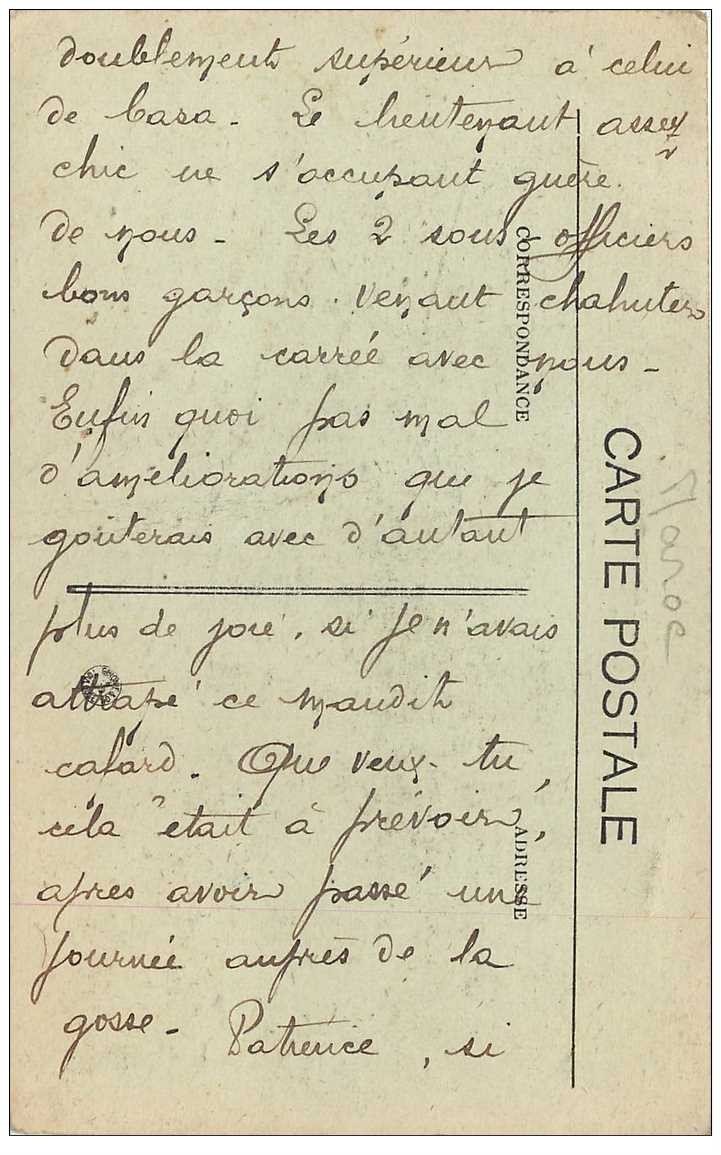 doublement supérieur à celui
de Casa - Le lieutenant assez
chic ne s'occupant guère
de nous - Les 2 sous officiers
bons garçons. venant chahuter
dans la carrée avec nous -
Enfin quoi pas mal
d'améliorations que je
gouterais avec d'autant
plus de joie, si je n'avais
attrapé ce maudit
cafard. Que veux-tu
cela était à prévoir,
apres avoir passé une
journée auprès de la
gosse - Patience, si
CORRESPONDANCE
ADRESSE
CARTE POSTALE
Maroc